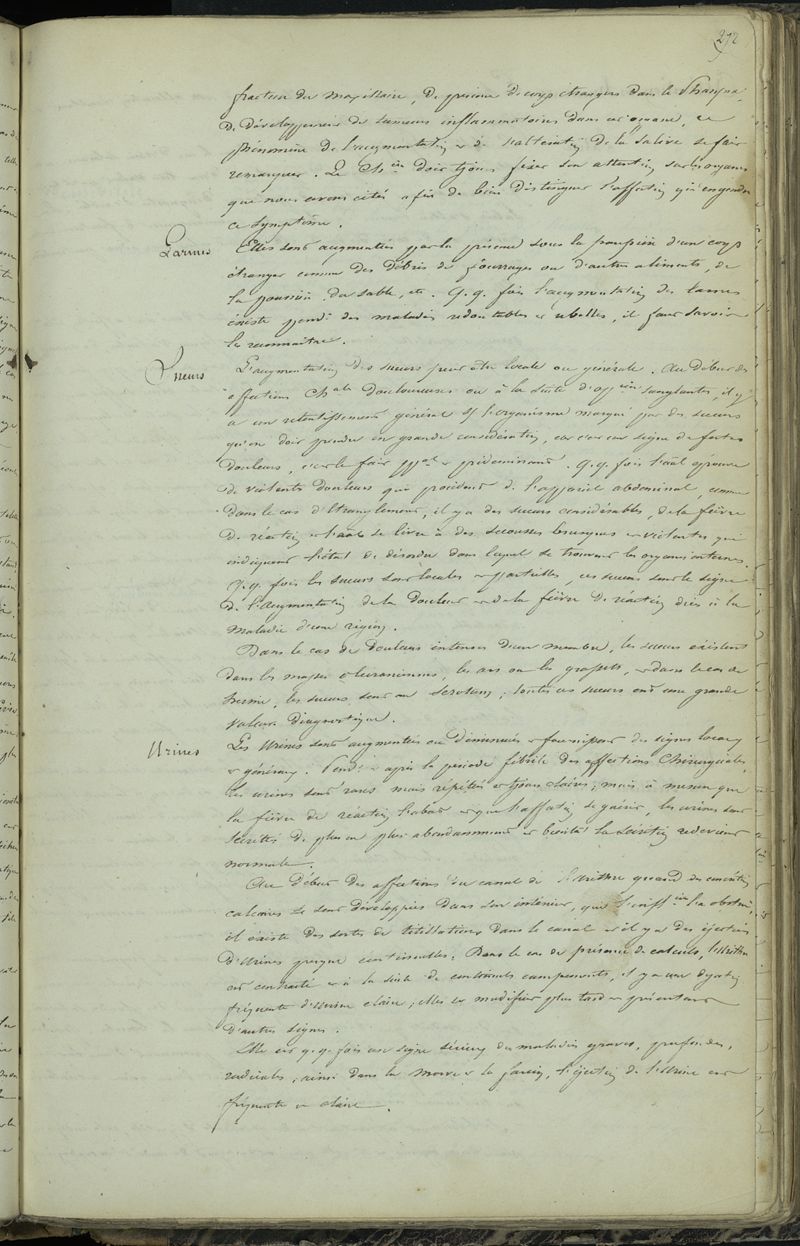 272
fracture du maxillaire, de présence de corps étrangers dans le Pharynx,
de développement de tumeurs inflammatoires dans cet organe, ce
phénomène de l'augmentation et de l'altération de la salive se fait
remarquer. Le Ch.ien doit tjours fixer son attention sur les organes
que nous avons cités afin de bien distinguer l'affection qui engendre
ce symptôme.
Larmes Elles sont augmentées par la présence sous la paupière d'un corps
étranger comme des débris de fourrages ou d'autres aliments, de
la poussière, du sable, etc. Q.q. fois l'augmentation des larmes
existe pend.t des maladies redoutables et rebelles, il faut savoir
la reconnaître.
Sueurs L'augmentation des sueurs peut être locale ou générale. Au début des
affections Ch.ales douloureuses ou à la suite d'op.ions sanglantes, il y
a un retentissement général s/ l'organisme marqué par des sueurs
qu'on doit prendre en grande considération, car c'est un signe de fortes
douleurs, c'est le fait pp.al et prédominant. Q.q. fois l'a.al éprouve
de violentes douleurs qui procèdent de l'appareil abdominal, comme
dans le cas d'étranglement, il y a des sueurs considérables, de la fièvre
de réaction et l'a.al se livre à des secousses brusques et violentes qui
indiquent l'état de désordre dans lequel se trouvent les organes internes.
Q.q. fois les sueurs sont locales et partielles, ces sueurs sont le signe
de l'augmentation de la douleur et de la fièvre de réaction dues à la
maladie d'une région.
Dans le cas de douleurs intenses d'un membre, les sueurs existent
dans les masses olécraniennes, les ars ou les grassets, et dans le cas de
hernie, les sueurs sont au scrotum; toutes ces sueurs ont une grande
valeur diagnostique.
Urines Les Urines sont augmentées ou diminuées et fournissent des signes locaux
et généraux. Pend.t et après la période fébrile des affections Chirurgicales,
les urines sont rares mais répétées et tjours claires; mais à mesure que
la fièvre de réaction s'abat et que l'affection se guérit, les urines sont
secrétées de plus en plus abondamment et bientôt la sécrétion redevient
normale.
Au début des affections du canal de l'urèthre quand des concrétions
calcaires se sont développées dans son intérieur, que l'infl.ion l'a obstrué,
il existe des sortes de titillations dans le canal et il y a des éjections
d'Urines presque continuelles. Dans le cas de présence de calculs, l'Urèthre
est contracté et à la suite de continuels campements, il y a une éjection
fréquente d'urine claire; elles se modifient plus tard et présentent
d'autres signes.
Elle est q.q. fois un signe sérieux des maladies graves, profondes,
radicales, ainsi dans la morve et le farcin, l'éjection de l'urine est
fréquente et claire.